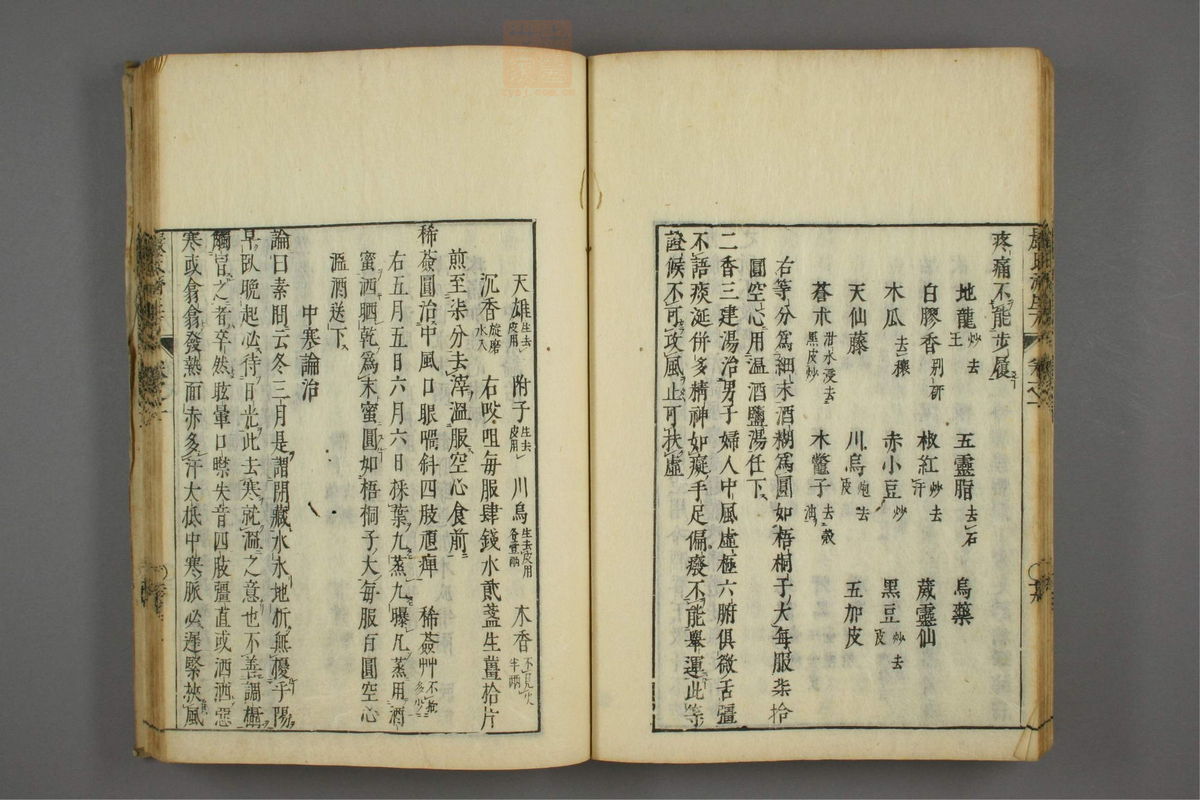 疼痛不能步履
地龍 炒去土 五靈脂 去石 烏藥
白膠香 別研 椒紅 炒去汗 葳靈仙
木瓜 去穰 赤小豆 炒 黑豆 炒去皮
天仙藤 川烏 炮去皮 五加皮
蒼朮 泔水浸去黑皮炒 木鱉子 去殼油
右等分爲細末酒糊爲圓如梧桐子大每服柒拾
圓空心用溫酒鹽湯任下
二香三建湯治男子婦人中風虛極六腑俱微舌彊
不語痰涎併多精神如癡手足偏廢不能舉運此等
證候不可攻風止可扶虛
天雄 生去皮用 附子 生去皮用 川烏 生去皮用各壹兩 木香 不見火半兩
沉香 旋磨水入 右㕮咀每服肆錢水貳盞生薑拾片
煎至柒分去滓溫服空心食前
稀薟圓治中風口眼喎斜四肢頑痺 稀薟艸 不拘多少
右五月五日六月六日採葉九蒸九曝凡蒸用酒
蜜洒晒乾爲末蜜圓如梧桐子大每服百圓空心
溫酒送下
中寒論治
論曰素問云冬三月是謂閉藏水冰地坼無擾乎陽
早臥晚起必待日光此去寒就溫之意也不善調攝
觸冒之者卒然眩暈口噤失音四肢彊直或洒洒惡
寒或翕翕發熱面赤多汗大抵中寒脈必遲緊挾風